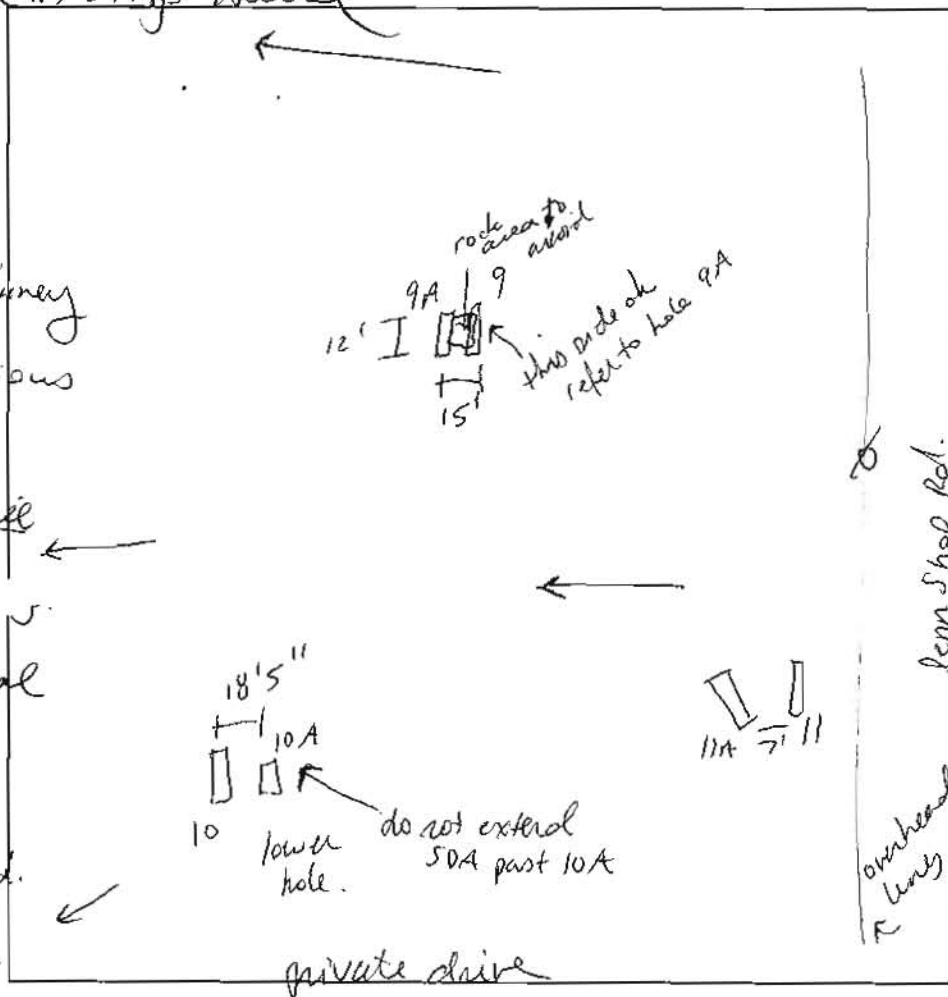 rock
area to
avoid
9A
9
12'
15'
this side ok
refer to hole 9A
Penn Shop Rd.
18'5"
10A
10
lower
hole.
do not extend
SDA past 10A
11A
7'
11
overhead
lines
private drive